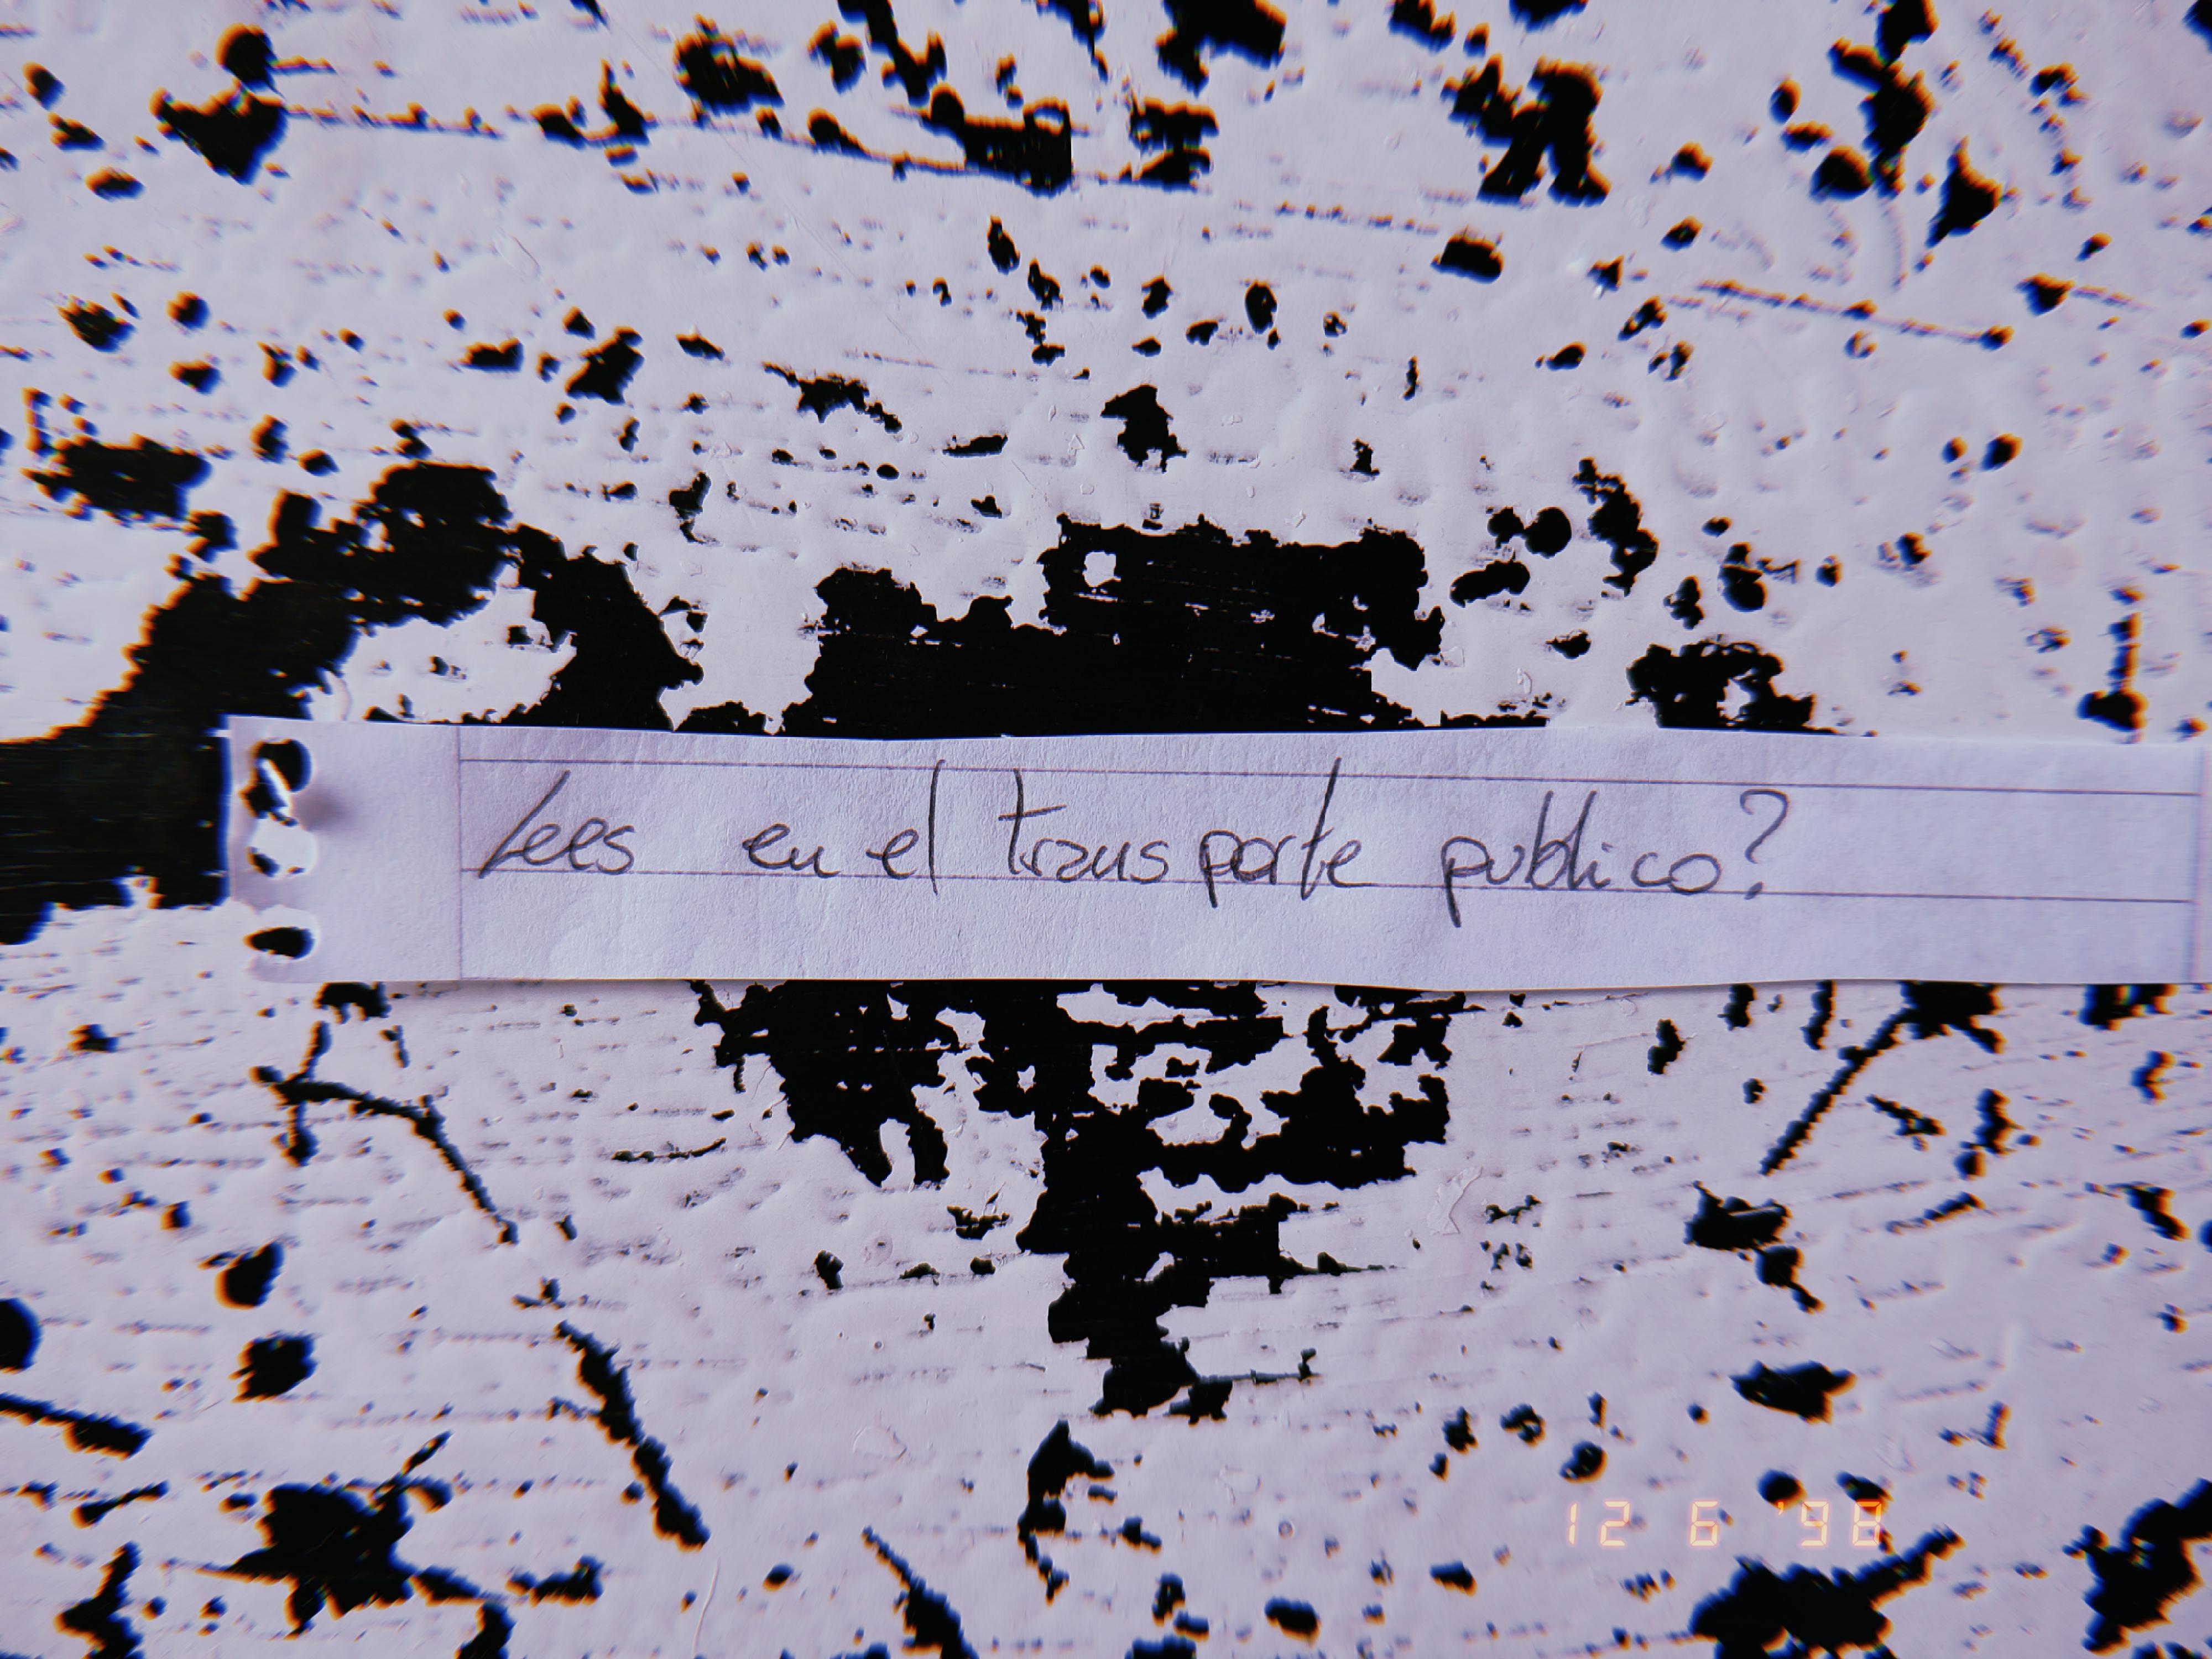 Lees en el transporte publico?
12 6 '98